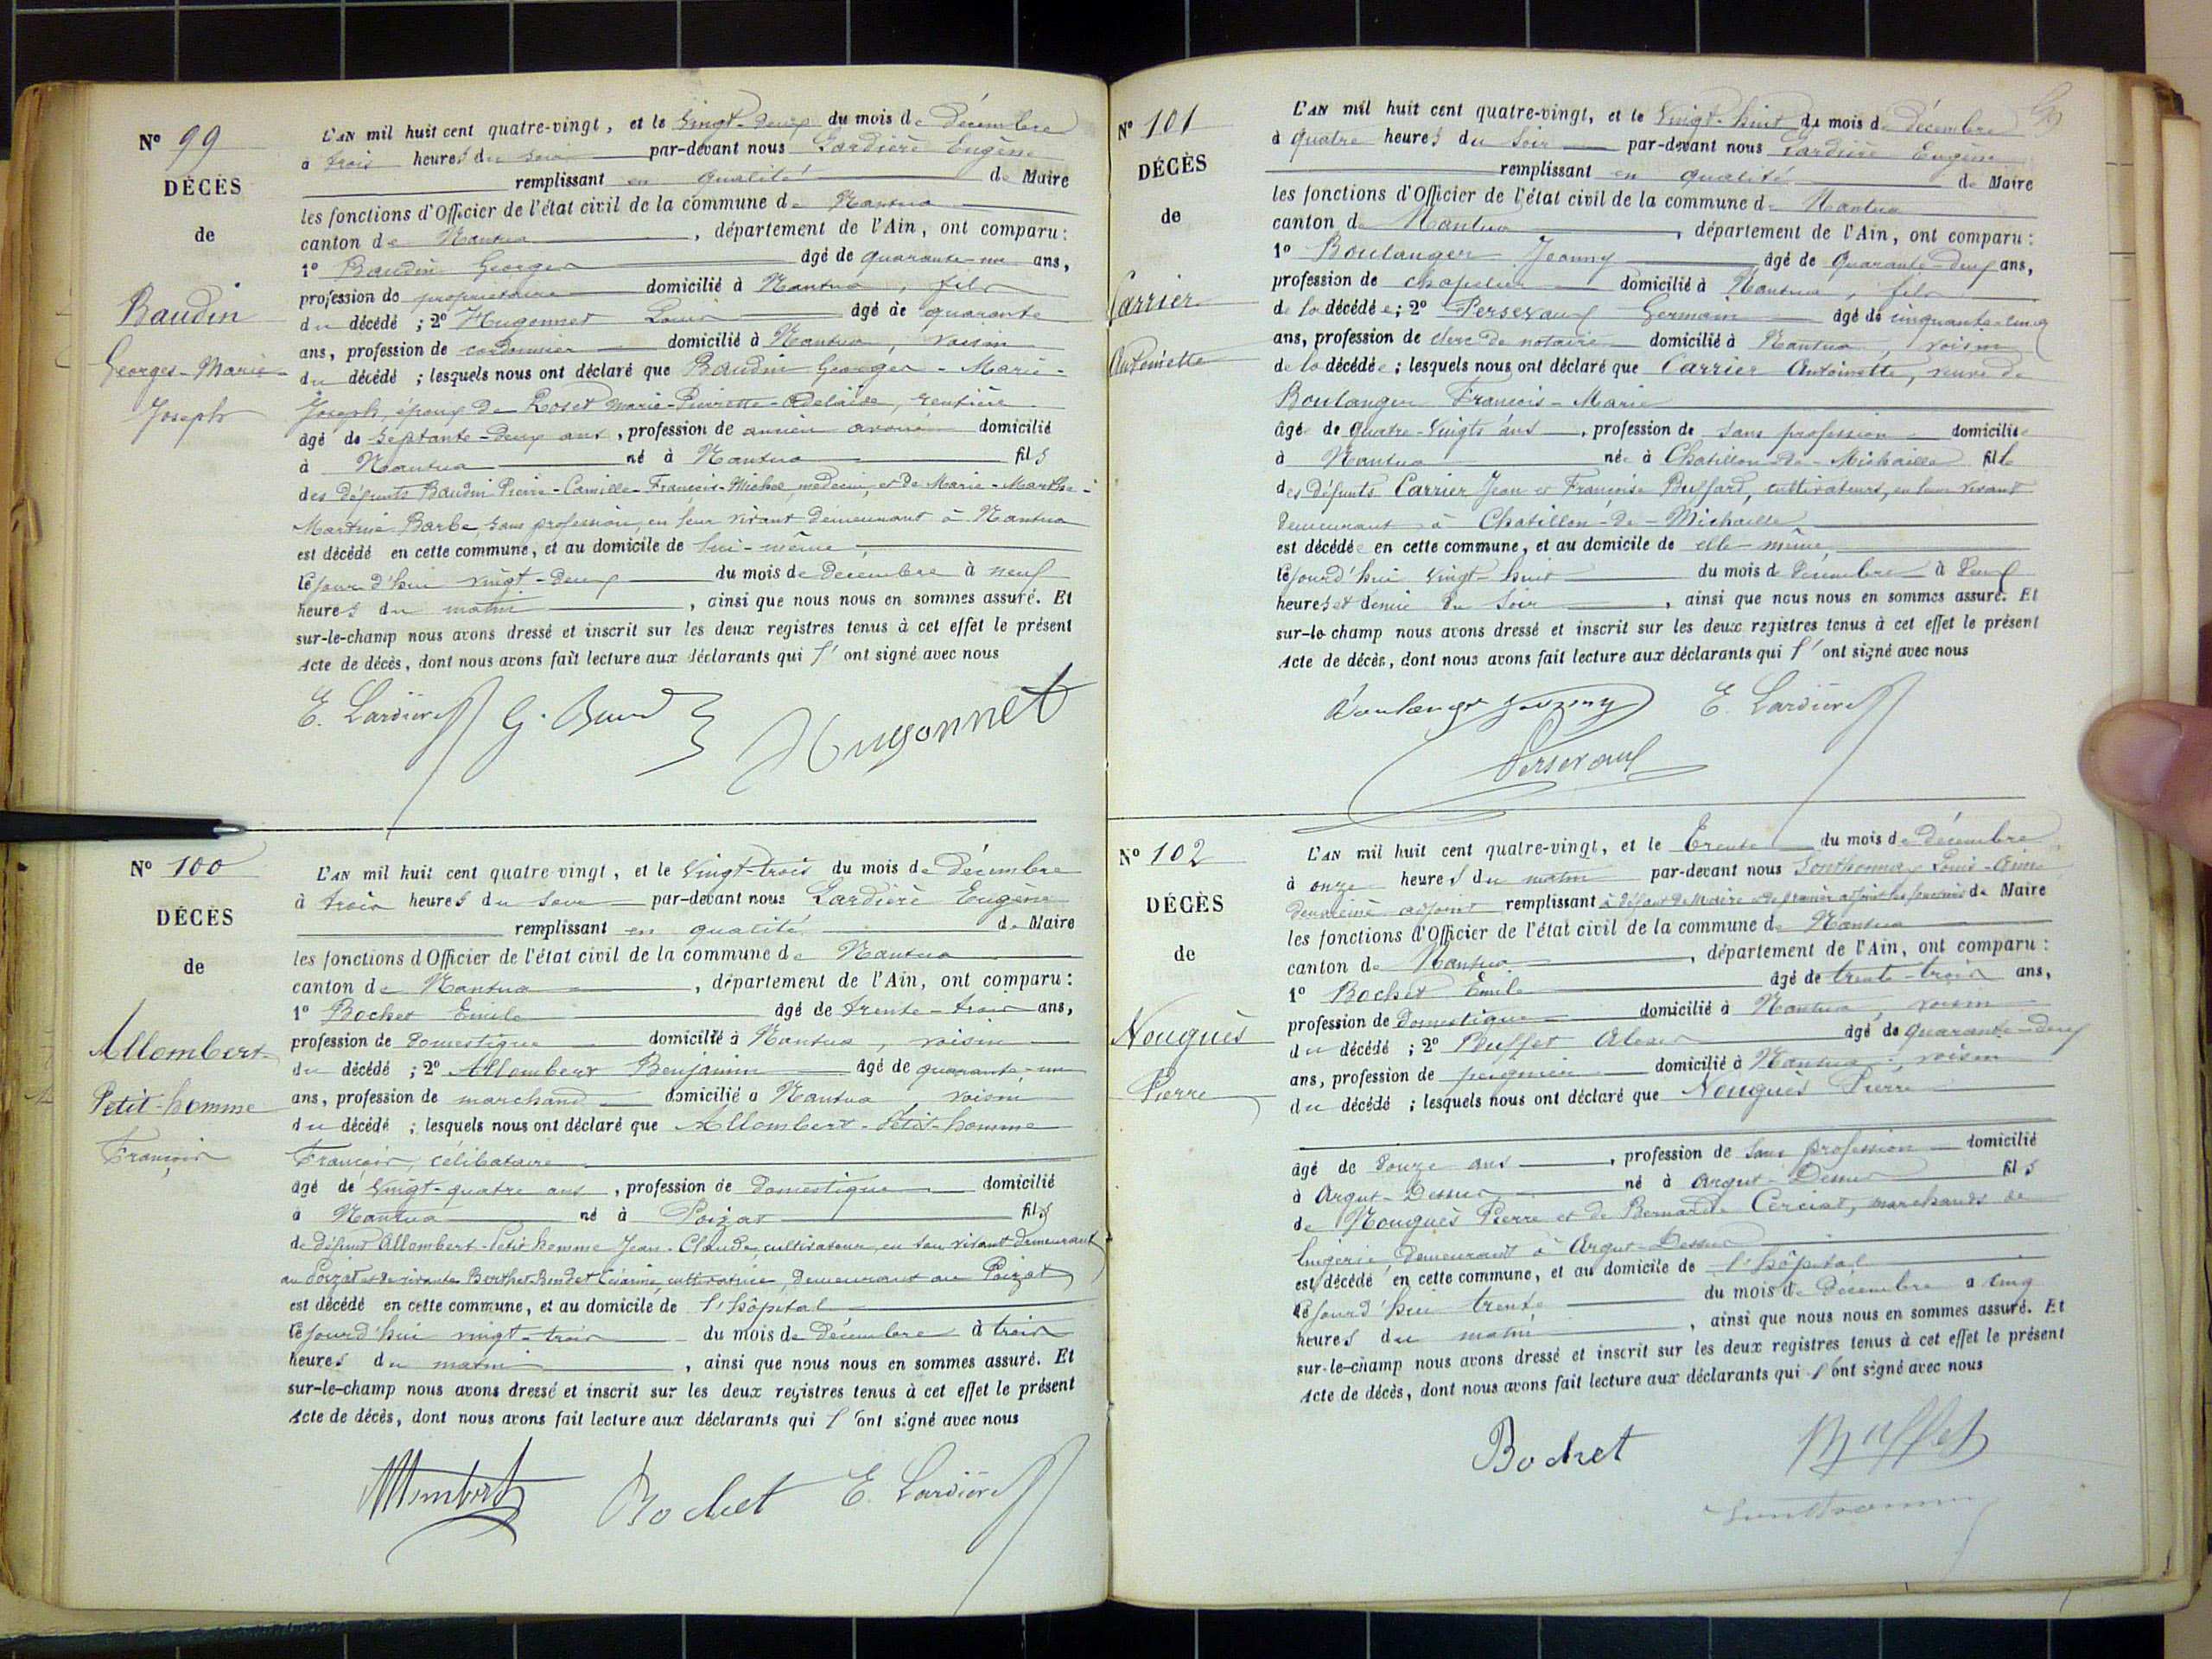 N° 99
DÉCÈS
de
Baudin
Georges-Marie-
Joseph
L'AN mil huit cent quatre-vingt, et le vingt-deux du mois de décembre
à trois heures du soir par-devant nous Lardière Eugène
remplissant en qualité de Maire
les fonctions d'Officier de l'état civil de la commune de Nantua
canton de Nantua, département de l'Ain, ont comparu :
1° Baudin Georges âgé de quarante-un ans,
profession de propriétaire domicilié à Nantua, fils
du décédé ; 2° Hugonnet Louis âgé de quarante
ans, profession de cordonnier domicilié à Nantua, voisin
du décédé ; lesquels nous ont déclaré que Baudin Georges-Marie-
Joseph, époux de Roset Marie-Pierrette-Adélaïde, rentière
âgé de septante-deux ans, profession de ancien avoué domicilié
à Nantua né à Nantua fils
des défunts Baudin Pierre-Camille-François-Michel, médecin, et de Marie-Marthe-
Martine Barbe, sans profession, en leur vivant demeurant à Nantua
est décédé en cette commune, et au domicile de lui-même,
cejourd'hui vingt-deux du mois de décembre à neuf
heures du matin, ainsi que nous nous en sommes assuré. Et
sur-le-champ nous avons dressé et inscrit sur les deux registres tenus à cet effet le présent
Acte de décès, dont nous avons fait lecture aux déclarants qui l'ont signé avec nous
E. Lardière G. Baud Hugonnet
N° 100
DÉCÈS
de
Allombert-
Petit-homme
François
L'AN mil huit cent quatre-vingt, et le vingt-trois du mois de décembre
à trois heures du soir par-devant nous Lardière Eugène
remplissant en qualité de Maire
les fonctions d'Officier de l'état civil de la commune de Nantua
canton de Nantua, département de l'Ain, ont comparu :
1° Bochet Emile âgé de trente-trois ans,
profession de domestique domicilié à Nantua, voisin
du décédé ; 2° Allombert Benjamin âgé de quarante-un
ans, profession de marchand domicilié à Nantua, voisin
du décédé ; lesquels nous ont déclaré que Allombert-Petit-homme
François, célibataire
âgé de vingt-quatre ans, profession de domestique domicilié
à Nantua né à Poizat fils
de défunt Allombert-Petit-homme Jean-Claude, cultivateur, en son vivant demeurant
au Poizat et de vivante Berthet-Bondet Césarine, cultivatrice, demeurant au Poizat
est décédé en cette commune, et au domicile de l'hôpital
cejourd'hui vingt-trois du mois de décembre à trois
heures du matin, ainsi que nous nous en sommes assuré. Et
sur-le-champ nous avons dressé et inscrit sur les deux registres tenus à cet effet le présent
Acte de décès, dont nous avons fait lecture aux déclarants qui l'ont signé avec nous
Allombert Bochet E. Lardière
N° 101
DÉCÈS
de
Carrier
Antoinette
L'AN mil huit cent quatre-vingt, et le vingt-huit du mois de décembre
à quatre heures du soir par-devant nous Lardière Eugène
remplissant en qualité de Maire
les fonctions d'Officier de l'état civil de la commune de Nantua
canton de Nantua, département de l'Ain, ont comparu :
1° Boulanger Joanny âgé de quarante-deux ans,
profession de chapelier domicilié à Nantua, fils
de la décédée ; 2° Perseraux Germain âgé de cinquante-cinq
ans, profession de clerc de notaire domicilié à Nantua, voisin
de la décédée ; lesquels nous ont déclaré que Carrier Antoinette, veuve de
Boulanger François-Marie
âgée de quatre-vingts ans, profession de sans profession domiciliée
à Nantua née à Chatillon-de-Michaille fille
des défunts Carrier Jean et Françoise Buffard, cultivateurs, en leur vivant
demeurant à Chatillon-de-Michaille
est décédée en cette commune, et au domicile de elle-même,
cejourd'hui vingt-huit du mois de décembre à deux
heures et demie du soir, ainsi que nous nous en sommes assuré. Et
sur-le champ nous avons dressé et inscrit sur les deux registres tenus à cet effet le présent
Acte de décès, dont nous avons fait lecture aux déclarants qui l'ont signé avec nous
Boulanger Joanny E. Lardière
Perseraux
N° 102
DÉCÈS
de
Nouguès
Pierre
L'AN mil huit cent quatre-vingt, et le trente du mois de décembre
à onze heures du matin par-devant nous Sonthonnax Louis-Aimé
deuxième adjoint remplissant à défaut de Maire et de premier adjoint les fonctions de Maire
les fonctions d'Officier de l'état civil de la commune de Nantua
canton de Nantua, département de l'Ain, ont comparu :
1° Bochet Emile âgé de trente-trois ans,
profession de domestique domicilié à Nantua, voisin
du décédé ; 2° Buffet Alexis âgé de quarante-deux
ans, profession de peignier domicilié à Nantua, voisin
du décédé ; lesquels nous ont déclaré que Nouguès Pierre
âgé de douze ans, profession de sans profession domicilié
à Argut-Dessus né à Argut-Dessus fils
de Nouguès Pierre et de Bernarde Cerciat, marchands de
lingerie demeurant à Argut-Dessus
est décédé en cette commune, et au domicile de l'hôpital
cejourd'hui trente du mois de décembre à cinq
heures du matin, ainsi que nous nous en sommes assuré. Et
sur-le-champ nous avons dressé et inscrit sur les deux registres tenus à cet effet le présent
Acte de décès, dont nous avons fait lecture aux déclarants qui l'ont signé avec nous
Bochet Buffet
Sonthonnax